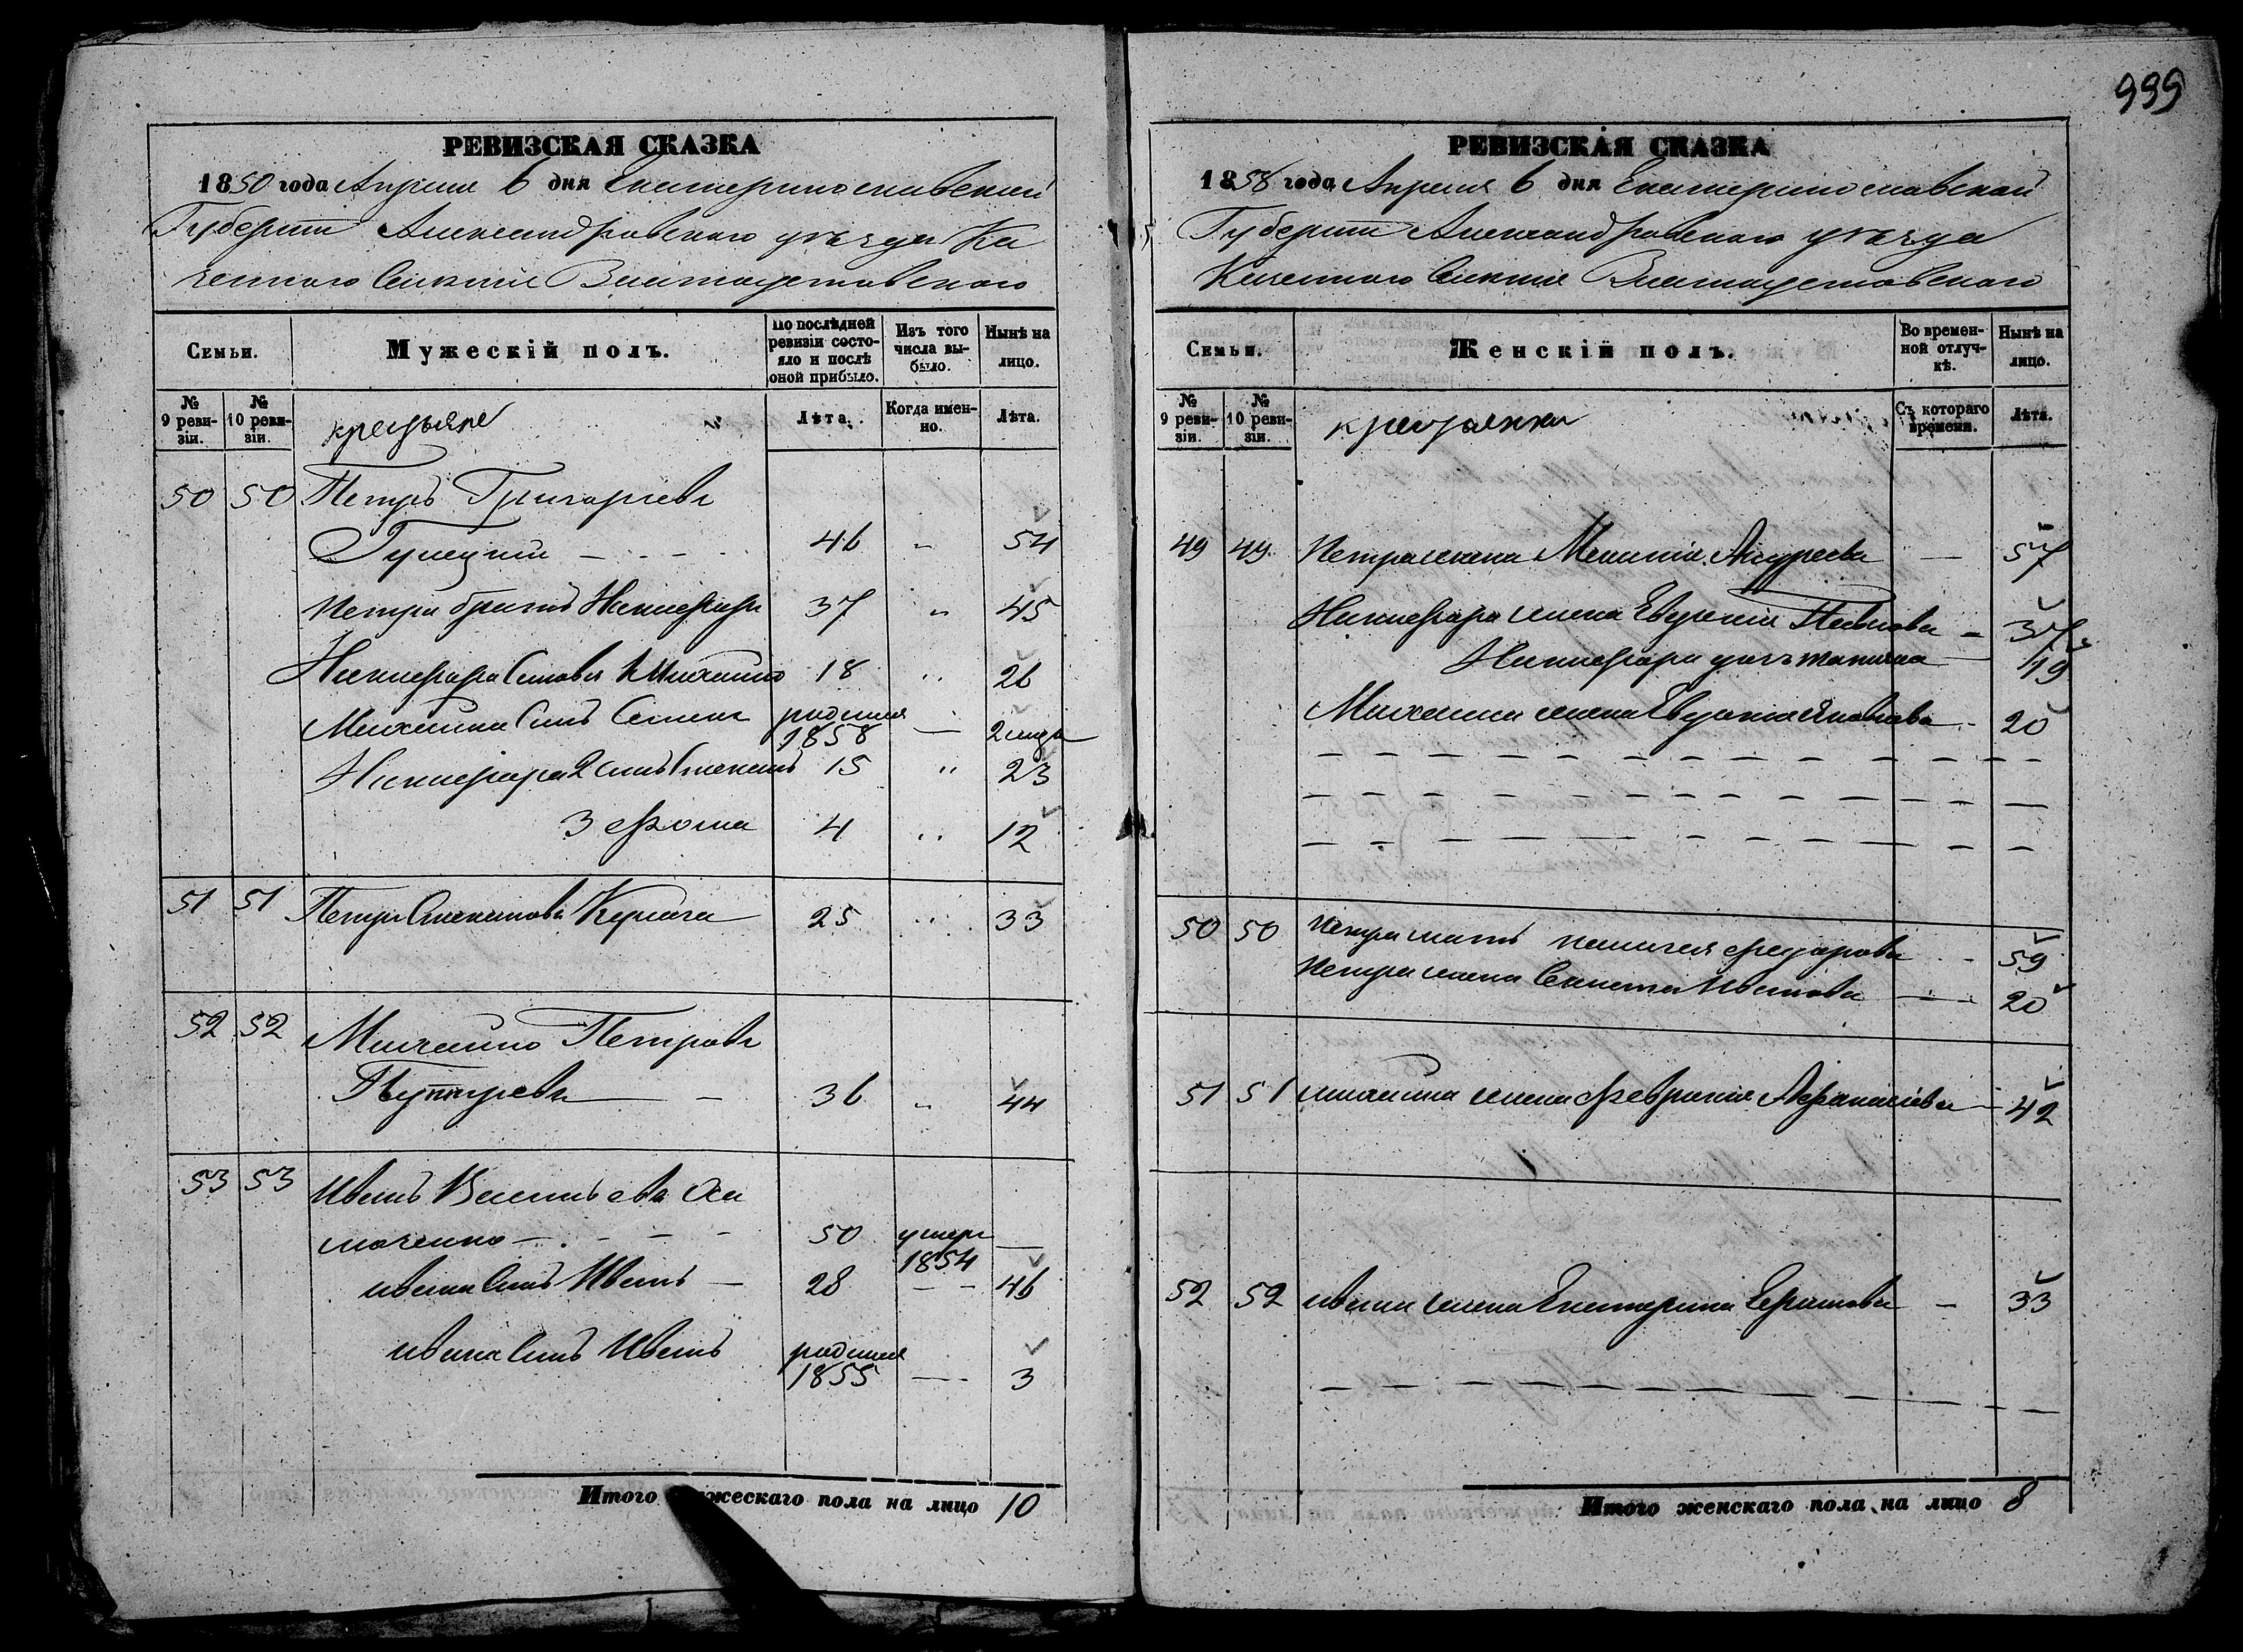 999
РЕВИЗСКАЯ СКАЗКА
1850 года Апреля 6 дня Екатеринославской
Губернии Александровского уезда Ка
зенного Селения
Семьи.
Мужескій полъ.
По послѣдней ревизіи состояло и послѣ оной прибыло.
Изъ того числа выбыло.
Нынѣ на лицо.
№ 9 ревизіи.
№ 10 ревизіи.
крестьяне
Лѣта.
Когда именно.
Лѣта.
50 50 Петръ Григорьевъ
46 " 54
Петра братъ Никифоръ 37 " 45
Никифора Сыновья 1 Михайло 18 " 26
Михайла Сынъ Семенъ родился 1858 — 2 
Никифора 2 сынъ Степанъ 15 " 23
3 фома 4 " 12
51 51 Петръ Степановъ 25 " 33
52 52 Михайло Петровъ
36 " 44
53 53 Иванъ Васильевъ Оса
 50 умеръ 1854 —
Ивана Сынъ Иванъ — 28 — 46
Ивана Сынъ Иванъ родился 1855 — 3
Итого мужескаго пола на лицо 10
РЕВИЗСКАЯ СКАЗКА
1858 года Апреля 6 дня Екатеринославской
Губернии Александровского уезда
Казенного Селения
Семьи.
Женскій полъ.
Во временной отлучкѣ.
Нынѣ на лицо.
№ 9 ревизіи.
№ 10 ревизіи.
крестьянки
Съ котораго времени.
Лѣта.
49 49 Петра жена Андреева — 57
Никифора жена Евгения Павлова — 37
Никифора дочь татьяна — 19
Михайла жена Яковлева — 20
50 50 Петра мать федорова — 59
Петра жена Иванова — 20
51 51 михаила жена феврония Афанасиева — 42
52 52 ивана жена Екатерина Ефимова — 33
Итого женскаго пола на лицо 8